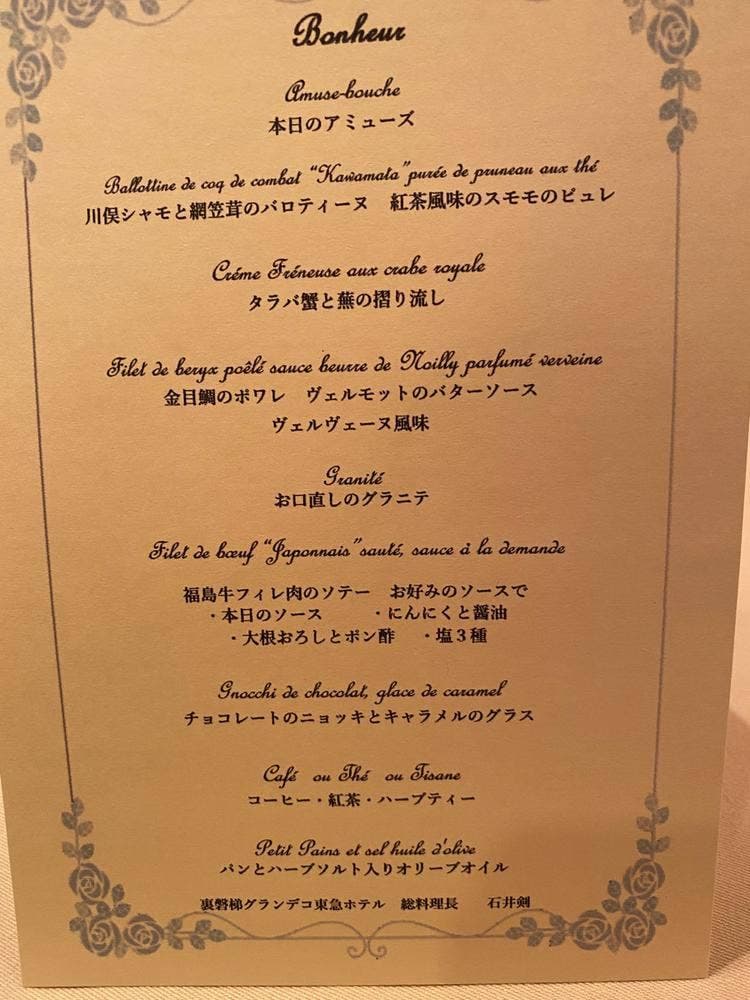 Bonheur
Amuse-bouche
本日のアミューズ
Ballottine de coq de combat “Kawamata”purée de pruneau aux thé
川俣シャモと網笠茸のバロティーヌ　紅茶風味のスモモのピュレ
Créme Fréneuse aux crabe royale
タラバ蟹と蕪の摺り流し
Filet de beryx poêlé sauce beurre de Noilly parfumé verveine
金目鯛のポワレ　ヴェルモットのバターソース
ヴェルヴェーヌ風味
Granité
お口直しのグラニテ
Filet de bœuf “Japonnais”sauté, sauce à la demande
福島牛フィレ肉のソテー　お好みのソースで
・本日のソース　　・にんにくと醤油
・大根おろしとポン酢　・塩３種
Gnocchi de chocolat, glace de caramel
チョコレートのニョッキとキャラメルのグラス
Café ou Thé ou Tisane
コーヒー・紅茶・ハーブティー
Petit Pains et sel huile d'olive
パンとハーブソルト入りオリーブオイル
裏磐梯グランデコ東急ホテル　総料理長　　石井剣